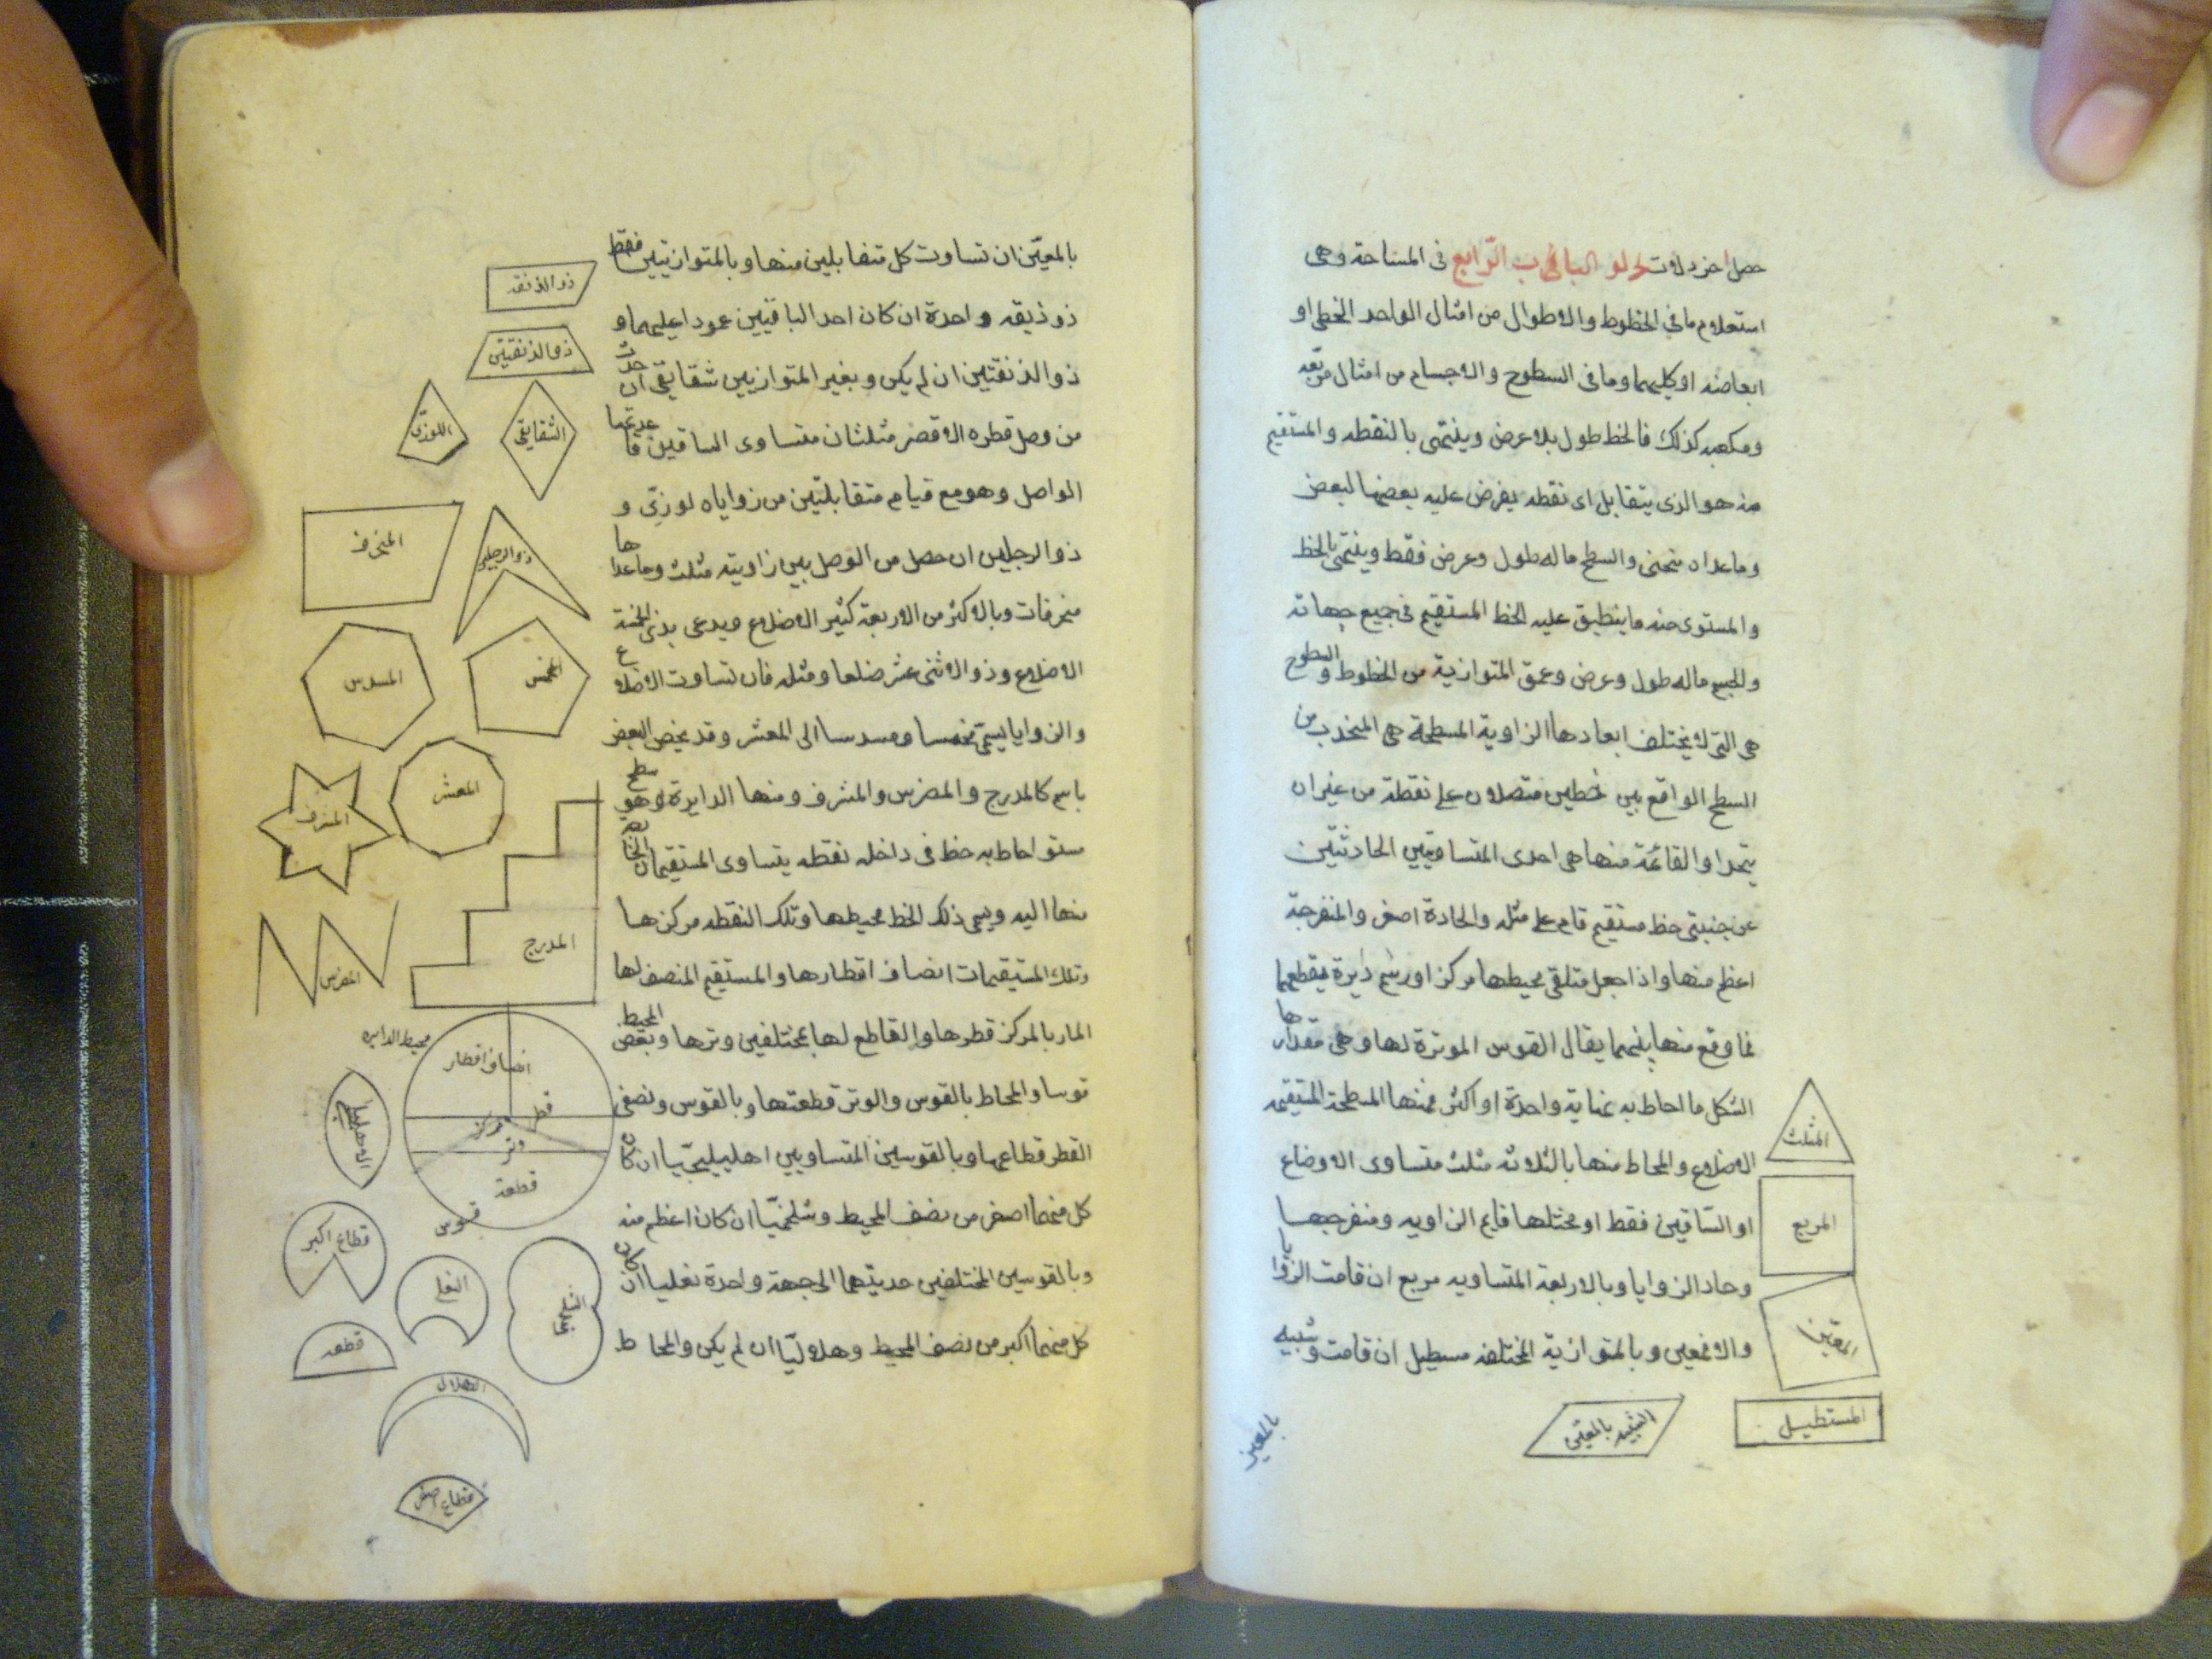 الباب الرابع فى المساحة وهى
استعلام ما فى الخطوط والاطوال من امثال الواحد الخطى او
ابعاضه او كليهما وما فى السطوح والاجسام من امثال مربعه
ومكعبه كذلك فالخط طول بلا عرض وينتهى بالنقطه والمستقيم
منه هو الذى يتقابل اى نقطه يفرض عليه بعضها لبعض
وما عداه منحنى والسطح ما له طول وعرض فقط وينتهى بالخط
والمستوى منه ما ينطبق عليه الخط المستقيم فى جميع جهاته
والجسم ماله طول وعرض وعمق المتوازية من الخطوط والسطوح
هى التى لا يختلف ابعادها الزاوية المسطحة هى المنحدب من
السطح الواقع بين خطين متصلان على نقطة من غير ان
يتحدا والقائمة منها هى احدى المتساويتين الحادثتين
عن جنبتى خط مستقيم قام على مثله والحادة اصغر والمنفرجة
اعظم منها واذا جعل متلقى محيطها مركز او رسم دايرة يقطعهما
فما وقع منها بينهما يقال القوس الموترة لها وهى مقدارها
الشكل ما احاط به نهاية واحدة او اكثر فمنها المسطحة المستقيمه
الاضلاع والمحاط منها بالثلاثه مثلث متساوى الاوضاع
او الساقين فقط او مختلها قايم الزاويه ومنفرجها
وحاد الزوايا وبالاربعة المتساويه مربع ان قامت الزوايا
والا فمعين وبالمتوازية المختلفه مستطيل ان قامت وشبيه
المثلث
المربع
المعين
المستطيل
الشبيه بالمعين
بالمعين
بالمعيّن ان تساوت كل متقابلين منها وبالمتوازيتين فقط
ذو ذنيقه واحدة ان كان احد الباقيين عمودا عليهما و
ذو الذنقتين ان لم يكن وبغير المتوازيين شقايقى ان حدث
من وصل قطره الاقصر مثلثان متساوى الساقين قاعدتهما
الواصل وهو مع قيام متقابلتين من زواياه لوزى و
ذو الرجلين ان حصل من الوصل بين زاويته مثلث وما عداها
منحرفات وبالاكثر من الاربعة كثير الاضلاع ويدعى بذى الخمسة
الاضلاع وذو الاثنى عشر ضلعا ومثله فان تساوت الاضلاع
والزوايا يسمى مخمسا ومسدسا الى المعشر وقد يخص البعض
باسم كالمدرج والمضرس والمشرف ومنها الدايرة وهو سطح
مستو احاط به خط فى داخله نقطه يتساوى المستقيمات الخارجة
منها اليه ويسمى ذلك الخط محيطها وتلك النقطه مركزها
وتلك المستقيمات انصاف اقطارها والمستقيم المنصف لها
المار بالمركز قطرها والقاطع لها بمختلفين وترها وبعض المحيط
قوسا والمحاط بالقوس والوتر قطعتها وبالقوس ونصفى
القطر قطاعها وبالقوسين المتساويين اهليليجيّا ان كان
كل منهما اصغر من نصف المحيط وشلجميّا ان كان اعظم منه
وبالقوسين المختلفين حدبتهما الى جهة واحدة نعليا ان كان
كل منهما اكبر من نصف المحيط وهلاليّا ان لم يكن والمحاط
ذو الذنقه
ذو الذنقتين
الشقايقى
اللوزى
ذو الرجلين
المنحرف
المخمس
المسدس
المعشر
المشرف
المدرج
المضرس
محيط الدايره
انصاف اقطار
قطر
مركز
وتر
قطعة
قوس
الاهليليجى
قطاع اكبر
النعلى
الشلجمى
قطعه
الهلال
قطاع اصغر